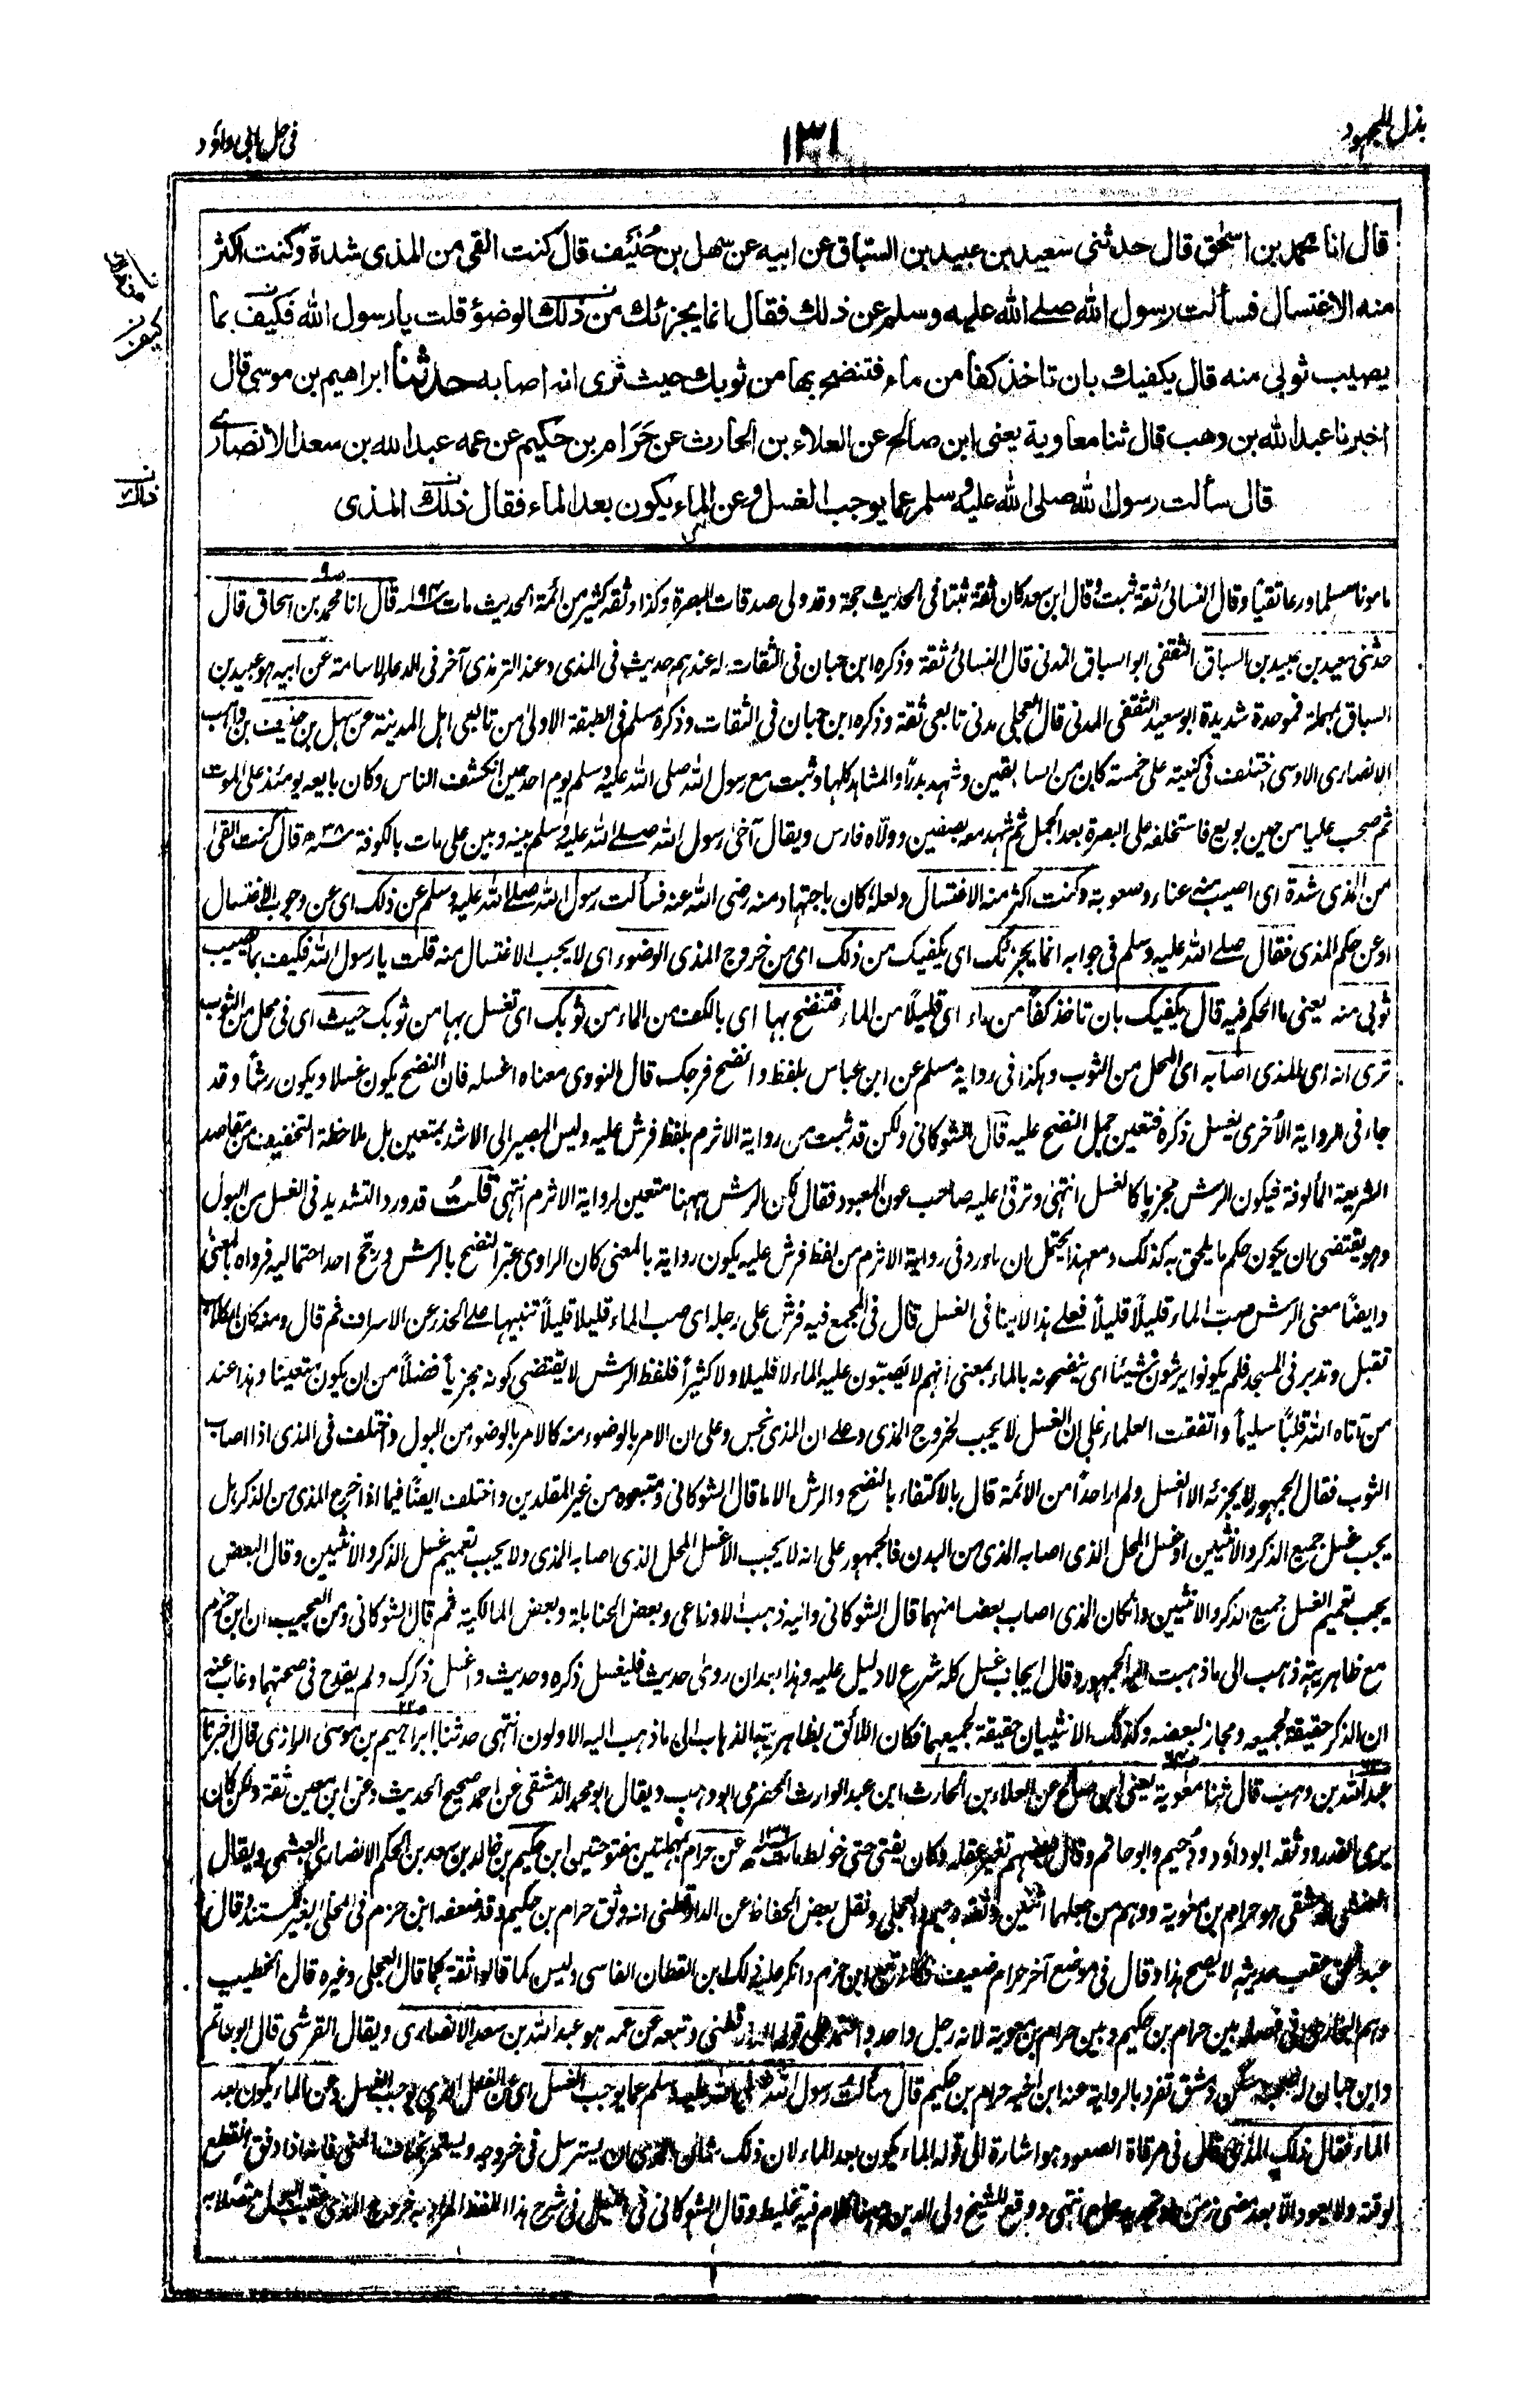 بذل المجهود
١٣١
في حل ابي داؤد
قال انا محمد بن اسحٰق قال حدثني سعيد بن عبيد بن السبّاق عن ابيه عن سهل بن حُنَيف قال كنت القى من المذى شدة وكنت اكثر
منه الاغتسال فسألت رسول الله صلے الله عليه وسلم عن ذلك فقال انما يجزئك من ذلك الوضوء قلت يا رسول الله فكيف بما
يصيب ثوبي منه قال يكفيك بان تاخذ كفا من ماء فتنضح بها من ثوبك حيث ترى انه اصابه حدثنا ابراهيم بن موسى قال
اخبرنا عبد الله بن وهب قال ثنا معاوية يعني ابن صالح عن العلاء بن الحارث عن حَرَام بن حكيم عن عمه عبد الله بن سعد الانصاري
قال سألت رسول الله صلى الله عليه وسلم عما يوجب الغسل وعن الماء يكون بعد الماء فقال ذلك المذى
ذلك
مامونا مسلما ورعا تقيا وقال النسائي ثقة ثبت وقال ابن سعد كان ثقة ثبتا في الحديث حجة وقد ولى صدقات البصرة وكذا وثقه كثير من ائمة الحديث مات ١٩٣ قال انا محمد بن اسحاق قال
حدثني سعيد بن عبيد بن السباق الثقفي ابو السباق المدني قال النسائي ثقة وذكره ابن حبان في الثقات له عندهم حديث في المذى وعند الترمذي آخر في الدعاء لاسامة عن ابيه هو عبيد بن
السباق بمهملة فموحدة شديدة ابو سعيد الثقفي المدني قال العجلي مدني تابعي ثقة وذكره ابن حبان في الثقات وذكره مسلم في الطبقة الاولى من تابعي اهل المدينة عن سهل بن حنيف بن واهب
الانصاري الاوسي اختلف في كنيته على خمسة كان من السابقين وشهد بدرا والمشاهد كلها وثبت مع رسول الله صلى الله عليه وسلم يوم احد حين انكشف الناس وكان بايعه يومئذ على الموت
ثم صحب عليا من حين بويع فاستخلفه على البصرة بعد الجمل ثم شهد معه بصفين وولاه فارس ويقال آخى رسول الله صلے الله عليه وسلم بينه وبين علي مات بالكوفة ٣٨ قال كنت القى
من المذى شدة اى اصيب منه عناء وصعوبة وكنت اكثر منه الاغتسال ولعله كان باجتهاد منه رضى الله عنه فسألت رسول الله صلے الله عليه وسلم عن ذلك اى عن وجوب الاغتسال
او عن حكم المذى فقال صلے الله عليه وسلم في جوابه انما يجزئك اى يكفيك من ذلك اى من خروج المذى الوضوء اى لا يجب الاغتسال منه قلت يا رسول الله فكيف بما يصيب
ثوبي منه يعني ما الحكم فيه قال يكفيك بان تاخذ كفا من ماء اى قليلاً من الماء فتنضح بها اى بالكف من الماء من ثوبك اى تغسل بها من ثوبك حيث اى في محل من الثوب
ترى انه اى المذى اصابه اى المحل من الثوب وهكذا في رواية مسلم عن ابن عباس بلفظ وانضح فرجك قال النووي معناه اغسله فان النضح يكون غسلا ويكون رشا وقد
جاء في الرواية الأخرى يغسل ذكره فتعين حمل النضح عليه قال الشوكاني ولكن قد ثبت من رواية الاثرم بلفظ فرش عليه وليس المصير الى الاشد بمتعين بل ملاحظة التخفيف من مقاصد
الشريعة المألوفة فيكون الرش مجزيا كالغسل انتهى وترقى عليه صاحب عون المعبود فقال لكن الرش ههنا متعين لرواية الاثرم انتهى قلتُ قد ورد التشديد في الغسل من البول
وهو يقتضى ان يكون حكم ما يلحق به كذلك ومع هذا يحتمل ان ما ورد في رواية الاثرم من لفظ فرش عليه يكون رواية بالمعنى كان الراوى عبّر النضح بالرش ورجّح احد احتماليه فرواه بالمعنى
وايضًا معنى الرش صب الماء قليلاً قليلاً فعلے هذا لاينا في الغسل قال في المجمع فيه فرش على رجله اى صب الماء قليلا قليلاً تنبيها على الحذر عن الاسراف ثم قال ومنه كان الكلاب
تقبل وتدبر في المسجد فلم يكونوا يرشون شيئا اى ينضحونه بالماء بمعنى انهم لا يَصبّون عليه الماء لا قليلا ولا كثيراً فلفظ الرش لا يقتضى كونه مجزياً فضلاً من ان يكون متعينا وهذا عند
من آتاه الله قلبًا سليماً واتفقت العلماء على ان الغسل لا يجب لخروج المذى وعلے ان المذى نجس وعلى ان الامر بالوضوء منه كالامر بالوضوء من البول واختلف في المذى اذا اصاب
الثوب فقال الجمهور لا يجزئه الا الغسل ولم ار احداً من الائمة قال بالاكتفاء بالنضح والرش الا ما قال الشوكاني ومتبعوه من غير المقلدين واختلف ايضًا فيما اذا خرج المذى من الذكر بل
يجب غسل جميع الذكر والانثيين او غسل المحل الذى اصابه المذى من البدن فالجمهور على انه لا يجب الا غسل المحل الذى اصابه المذى ولا يجب تعميم غسل الذكر والانثيين وقال البعض
يجب تعميم الغسل جميع الذكر والانثيين وان كان الذى اصاب بعضا منهما قال الشوكاني واليه ذهب الاوزاعي وبعض الحنابلة وبعض المالكية ثم قال الشوكاني ومن العجيب ان ابن حزم
مع ظاهريته ذهب الى ما ذهبت اليه الجمهور وقال ايجاب غسل كله شرع لا دليل عليه وهذا بعد ان روى حديث فليغسل ذكره وحديث واغسل ذكرك ولم يقدح في صحتهما وغاب عنه
ان الذكر حقيقة لجميعه ومجاز لبعضه وكذلك الانثيان حقيقة لجميعهما فكان اللائق بظاهريته الذهاب الى ما ذهب اليه الاولون انتهى حدثنا ابراهيم بن موسى الرازي قال اخبرنا
عبد الله بن وهب قال ثنا معٰوية يعني ابن صالح عن العلاء بن الحارث ابن عبد الوارث الحضرمي ابو وهب ويقال ابو محمد الدمشقي عن احمد صحيح الحديث وعن ابن معين ثقة ولكن كان
يرى القدر ووثقه ابو داؤد ودُحيم وابو حاتم وقال بعضهم تغير عقله وكان يفتى حتى خولط مات ١٣٦ عن حرام بمهملتين مفتوحتين ابن حكيم بن خالد بن سعد بن الحكم الانصاري العبشمي ويقال
هو حرام بن معٰوية ووهم من جعلهما اثنين وثقه دحيم والعجلي ونقل بعض الحفاظ عن الدارقطني انه وثق حرام بن حكيم وقد ضعفه ابن حزم في المحلى بغير مستند وقال
عبد الحق عقب حديثه لا يصح هذا وقال في موضع آخر حرام ضعيف ابن حزم وانكر عليه ذلك ابن القطان الفاسي وليس كما قالوا ثقة كما قال العجلي وغيره قال الخطيب
وهم البخاري في فصله بين حرام بن حكيم وبين حرام بن معٰوية لانه رجل واحد واعتمد على قوله الدارقطني وتبعه عن عمه هو عبد الله بن سعد الانصاري ويقال القرشي قال ابو حاتم
وابن حبان له صحبة سكن دمشق تفرد بالرواية عنه ابن اخيه حرام بن حكيم قال سألت رسول الله صلى الله عليه وسلم عما يوجب الغسل اى عن الفعل الذى يوجب الغسل وعن الماء يكون بعد
الماء فقال ذلك المذى قال في مرقاة الصعود هو اشارة الى قوله الماء يكون بعد الماء لان ذلك شأن المذى ان يسترسل في خروجه ويستمر بخلاف المنى فانه اذا دفق انقطع
لوقته ولا يعود الا بعد مضى زمن انتهى ووقع للشيخ ولى الدين ههنا كلام فيه تخليط وقال الشوكاني في النيل في شرح هذا اللفظ المراد به خروج المذى عقيب البول متصلا به